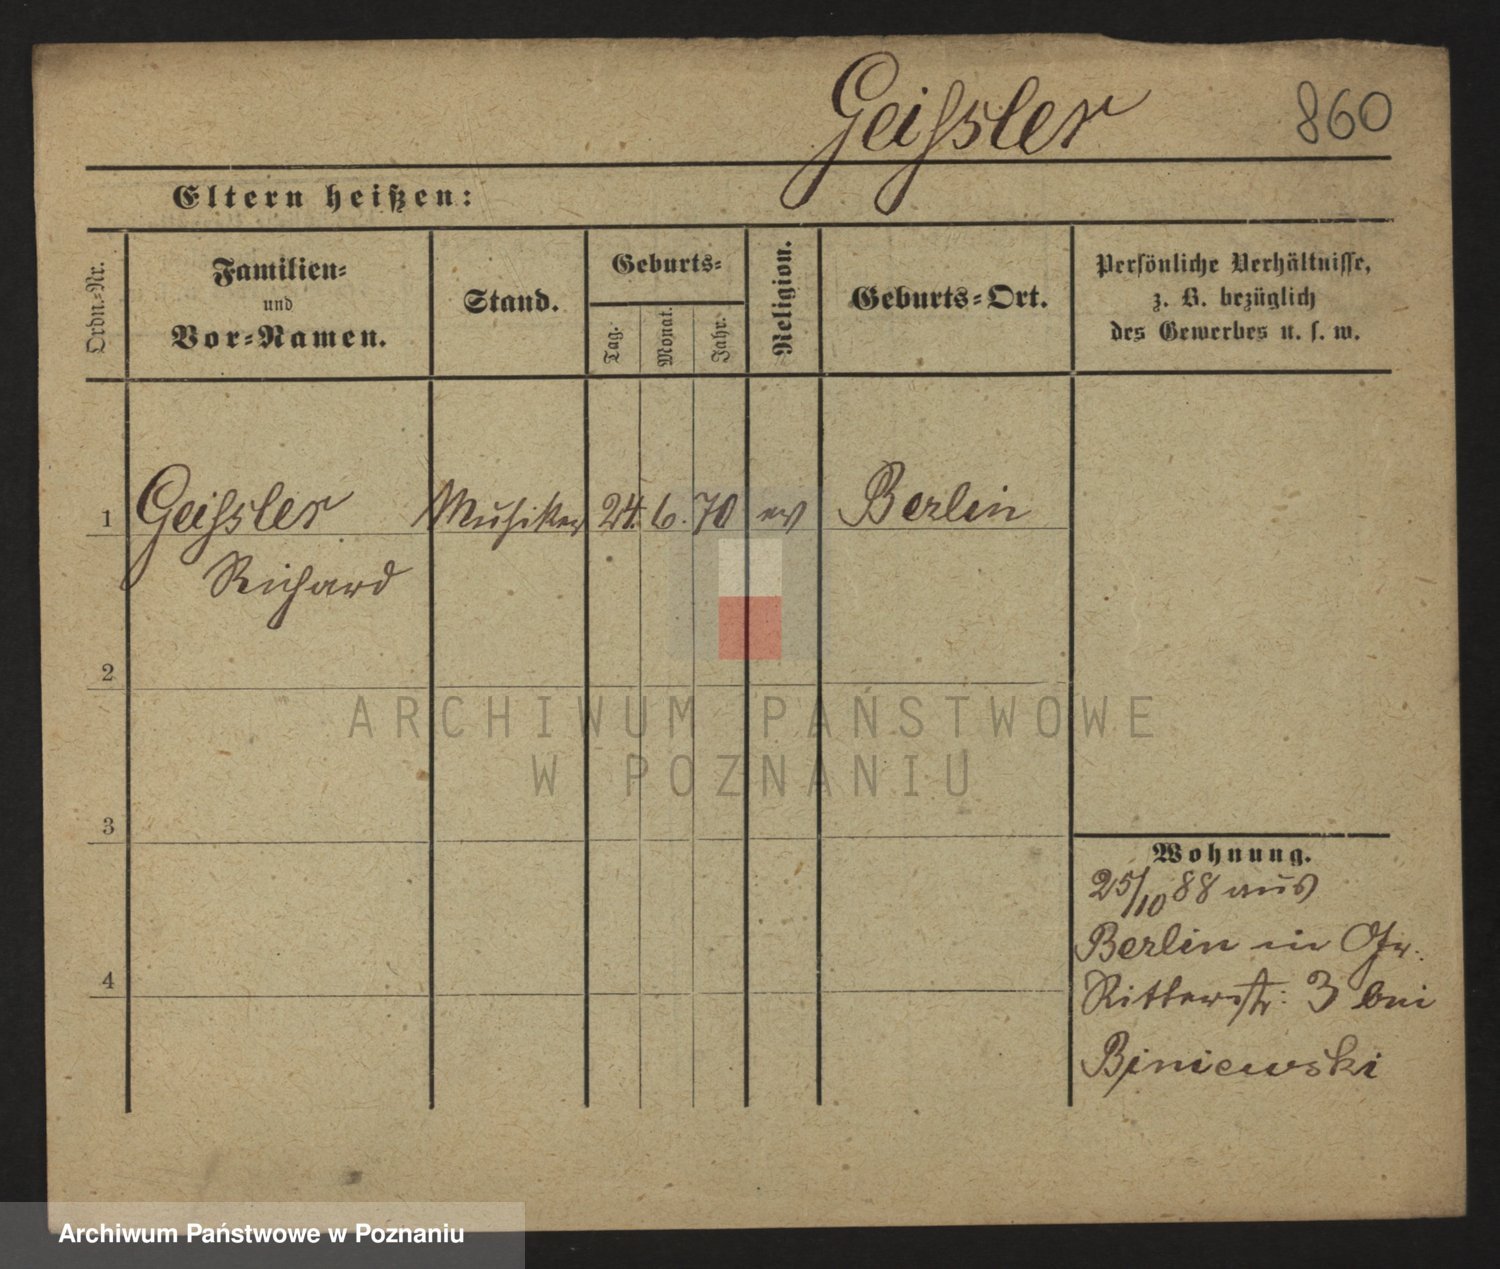 Geissler 860
Eltern heißen:
Ordn.-Nr.
Familien-
und
Vor-Namen.
Stand.
Geburts-
Tag.
Monat.
Jahr.
Religion.
Geburts-Ort.
Persönliche Verhältnisse,
z. B. bezüglich
des Gewerbes u. s. w.
1 Geissler Musiker 24. 6. 70 ev Berlin
Richard
2
3
4
Wohnung.
25/10 88 aus
Berlin in Gr.
Ritterstr: 3 bei
Biniewski
ARCHIWUM PAŃSTWOWE
W POZNANIU
Archiwum Państwowe w Poznaniu